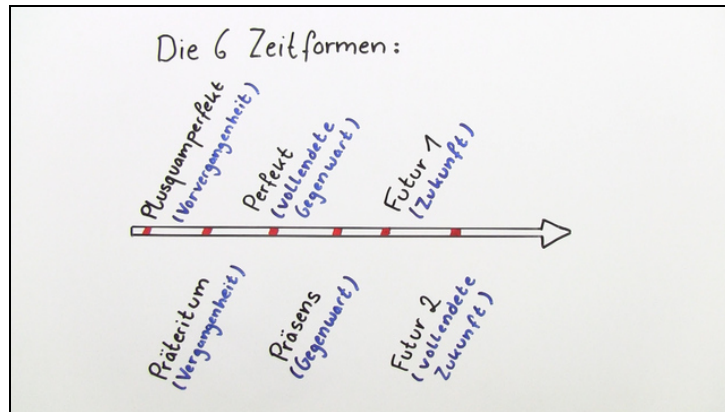 Die 6 Zeitformen:
Plusquamperfekt
(Vorvergangenheit)
Perfekt
(vollendete
Gegenwart)
Futur 1
(Zukunft)
Präteritum
(Vergangenheit)
Präsens
(Gegenwart)
Futur 2
(vollendete
Zukunft)